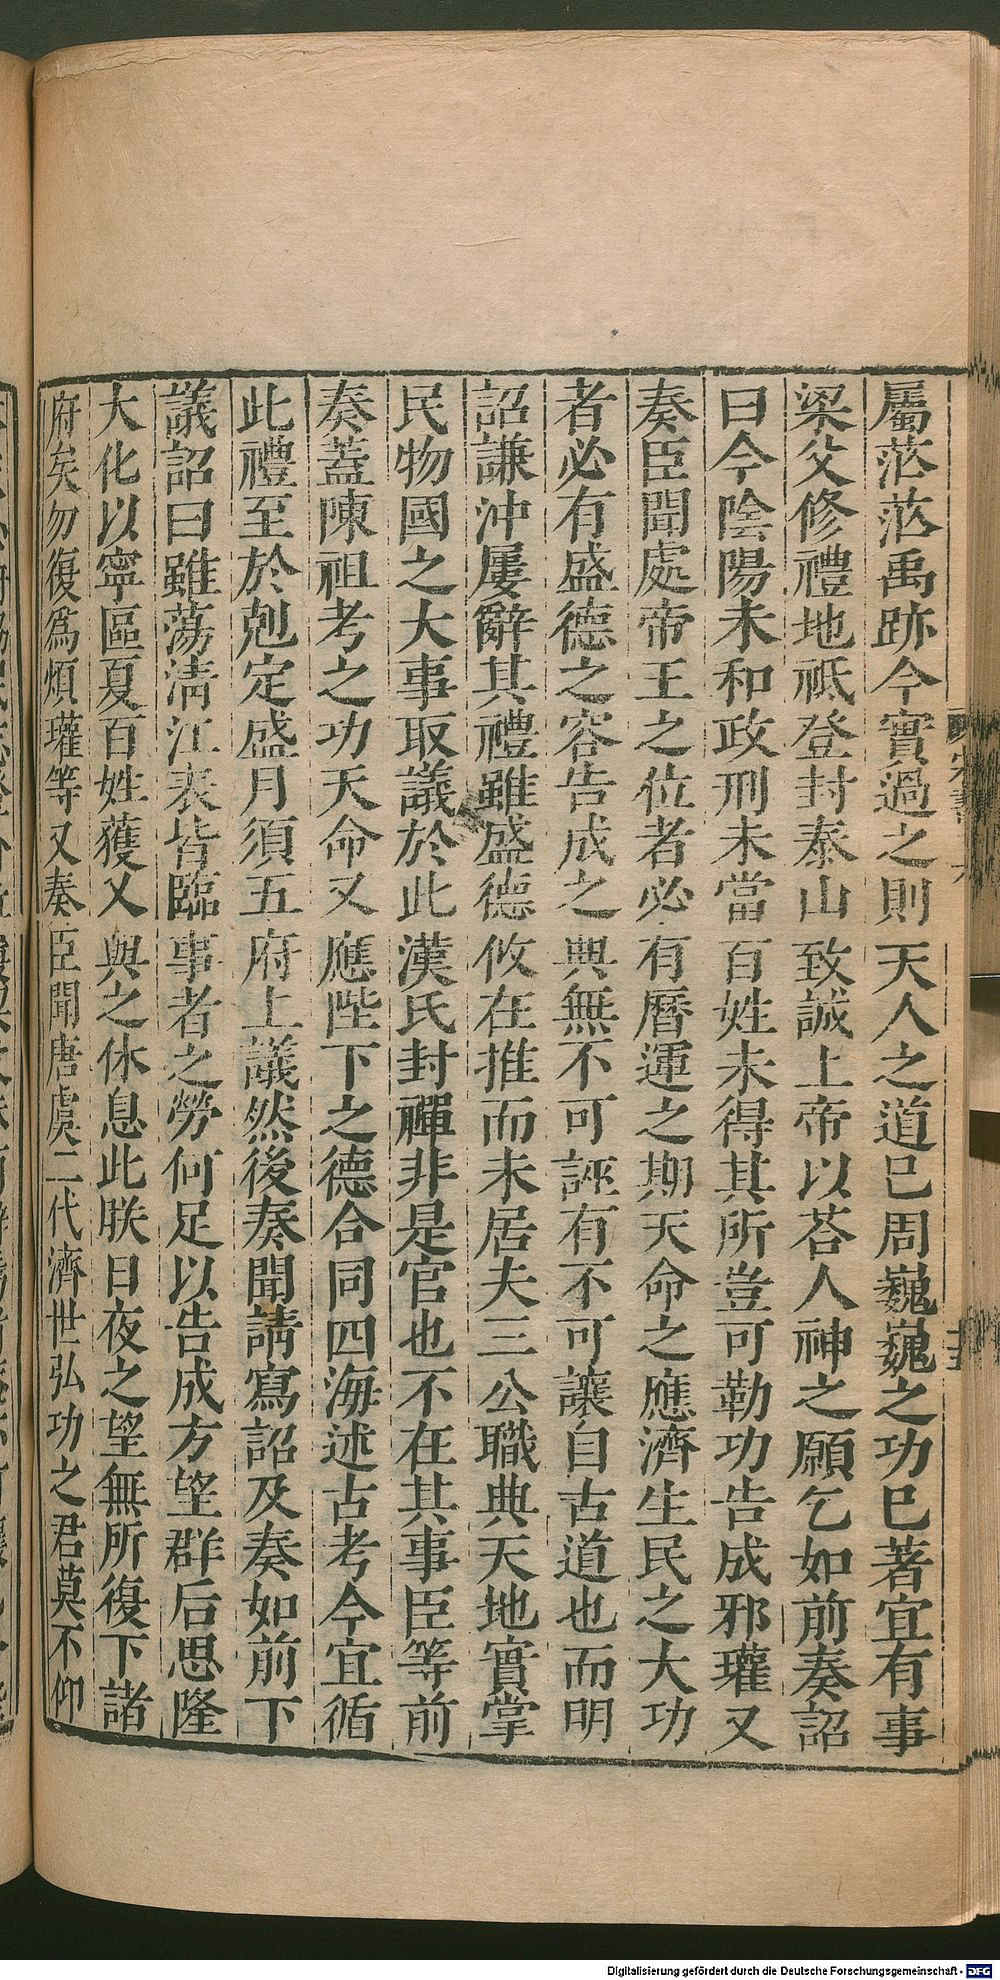 屬茫茫禹跡今實過之則天人之道已周巍巍之功已著宜有事
梁父修禮地祇登封泰山致誠上帝以荅人神之願乞如前奏詔
曰今陰陽未和政刑未當百姓未得其所豈可勒功告成邪瓘又
奏臣聞處帝王之位者必有曆運之期天命之應濟生民之大功
者必有盛德之容告成之典無不可誣有不可讓自古道也而明
詔謙沖屢辭其禮雖盛德攸在推而未居夫三公職典天地實掌
民物國之大事取議於此漢氏封禪非是官也不在其事臣等前
奏蓋陳祖考之功天命又應陛下之德合同四海述古考今宜循
此禮至於剋定盛月須五府上議然後奏聞請寫詔及奏如前下
議詔曰雖蕩清江表皆臨事者之勞何足以告成方望群后思隆
大化以寧區夏百姓獲乂與之休息此朕日夜之望無所復下諸
府矣勿復爲煩瓘等又奏臣聞唐虞二代濟世弘功之君莫不仰
Digitalisierung gefördert durch die Deutsche Forschungsgemeinschaft - DFG